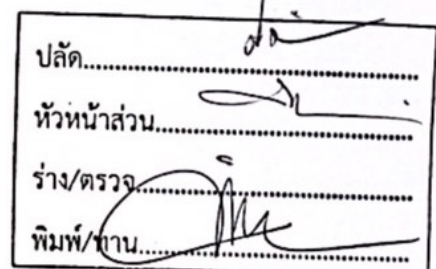 ปลัด....................................................
หัวหน้าส่วน........................................
ร่าง/ตรวจ...........................................
พิมพ์/ทาน..........................................